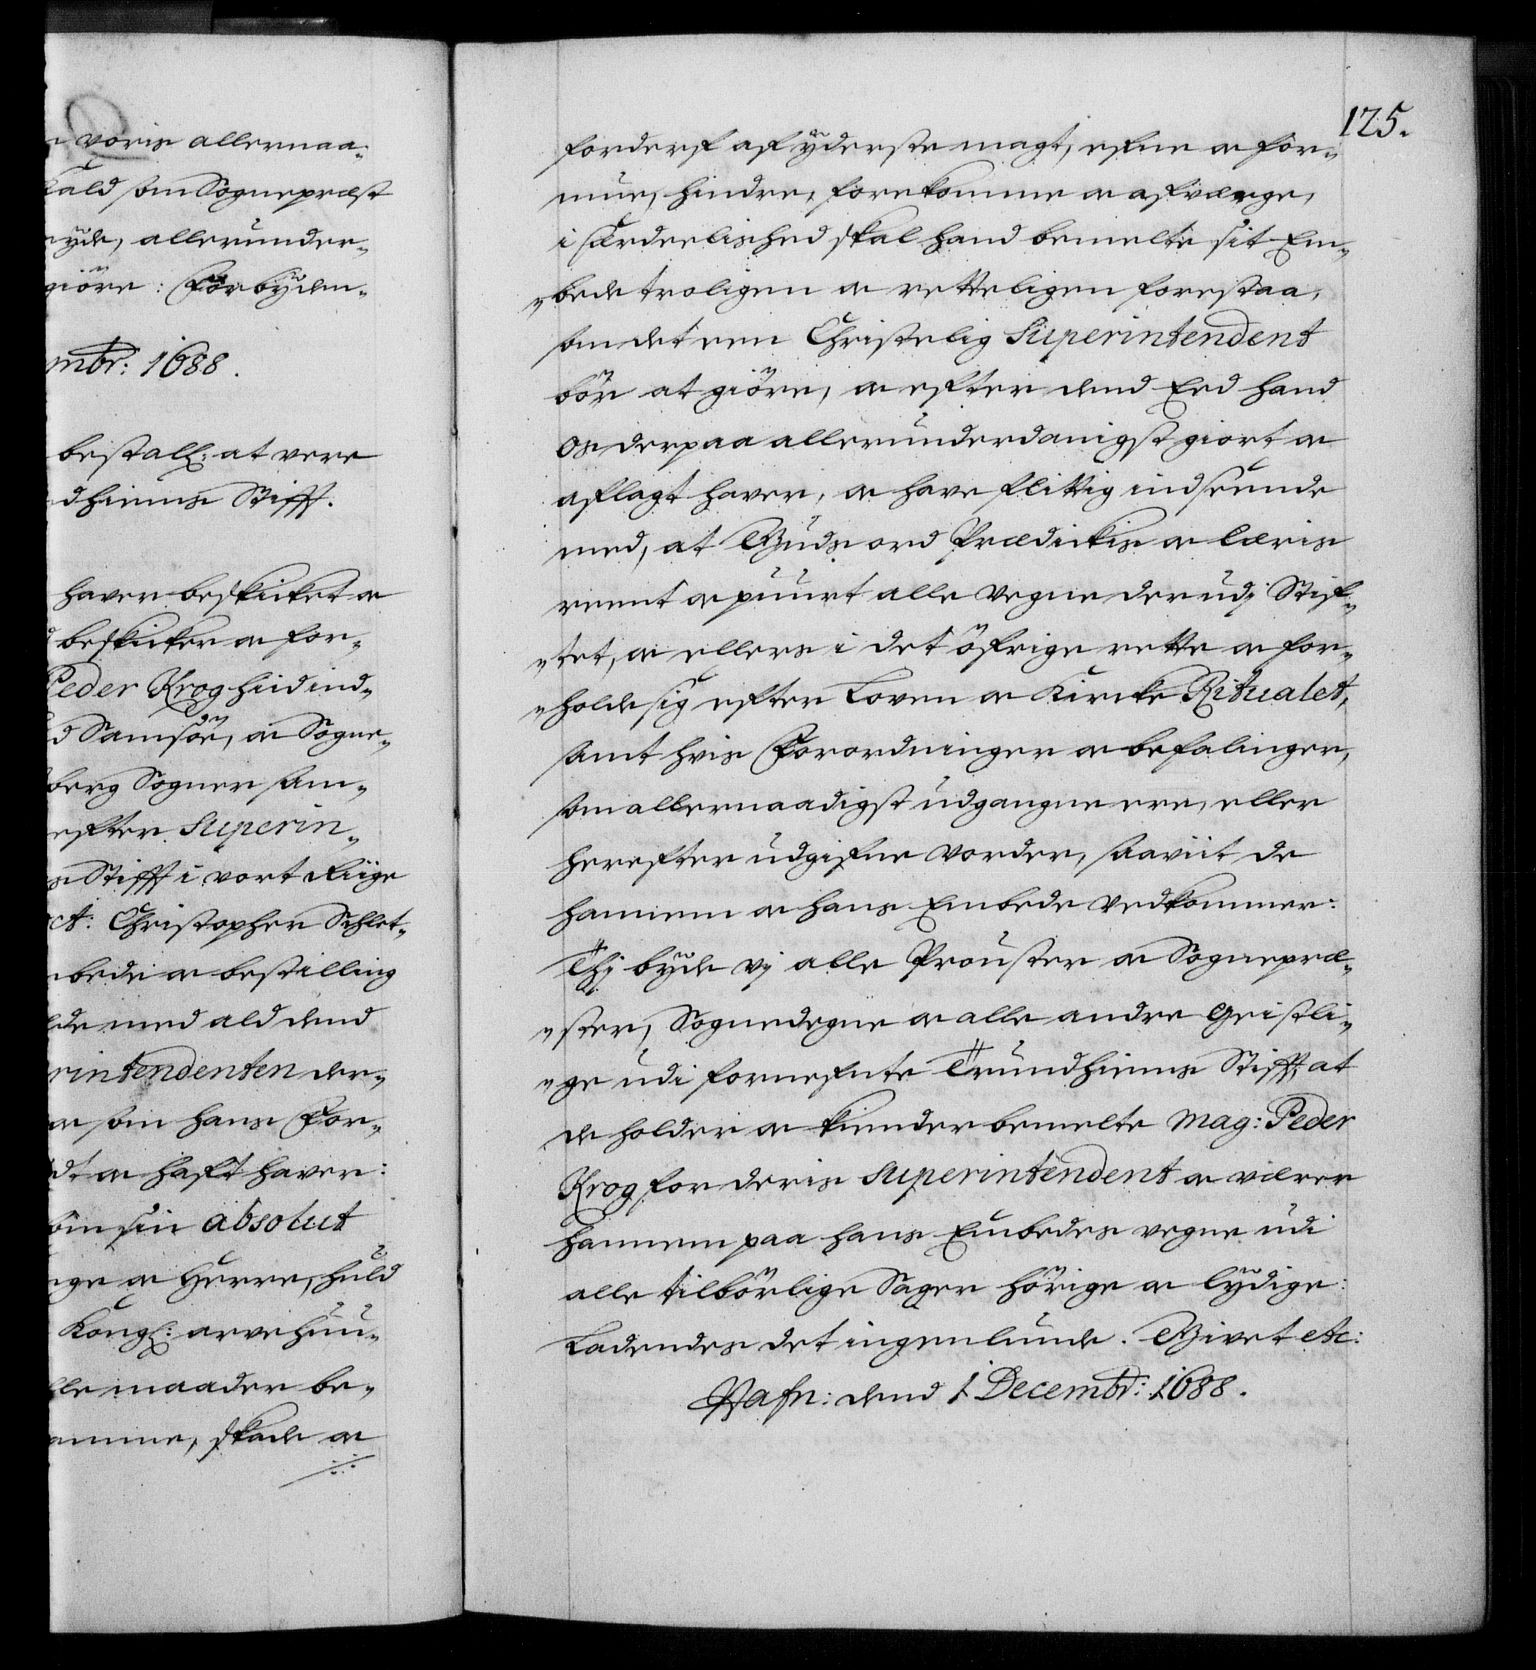 voris allernaa-
Kald som Sognepræst
nyde, allerunder-
giöre: Forbyden-
mbr: 1688.
bestall: at vere
dhiems Stifft.
haver beskicket oc
beskicker oc for-
Peder Krog hid ind-
d Samsöe, oc Sogne-
berg Sogner sam-
efter Superin-
s Stifft i vort Riige
ct: Christopher Schlet-
bede oc bestilling
de med ald dend
rintendenten der-
oc som hans For-
dt oc hafft haver:
som sin absolut
nge oc Herre, huld
Kongl: arvehuu-
lle maader be-
amme, skade oc
125.
forderf af yderste magt, efne oc for-
mue, hindre, forekomme oc afværge,
i særdeelished skal hand bemelte sit Em-
bede troligen oc retteligen forestaa,
som det een Christelig Superintendent
bör at giöre, oc efter dend Eed hand
os derpaa allerunderdanigst giort oc
aflagt haver, oc have flittig indseende
med, at Guds ord Prædickis oc læris
reent oc puurt alle vegne der udj Stif-
tet, oc ellers i det öfrige rette oc for-
holde sig efter Loven oc Kircke Ritualet,
samt hvis Forordninger oc befalinger,
som allernaadigst udgangne ere, eller
herefter udgifne vorder, saaviit de
hannem oc hans Embede vedkommer:
Thj byde vj alle Prouster oc Sognepræ-
ster, Sognedegne oc alle andre Geistli-
ge udi fornefnte Trundhiems Stifft, at
de holder oc kiender bemelte Mag: Peder
Krog for deris Superintendent oc værer
hannem paa hans Embedes vegne udi
alle tilbörlige Sager hörige oc lydige:
Ladendes det ingenlunde. Givet etc:
Hafn: dend 1 Decembr: 1688.